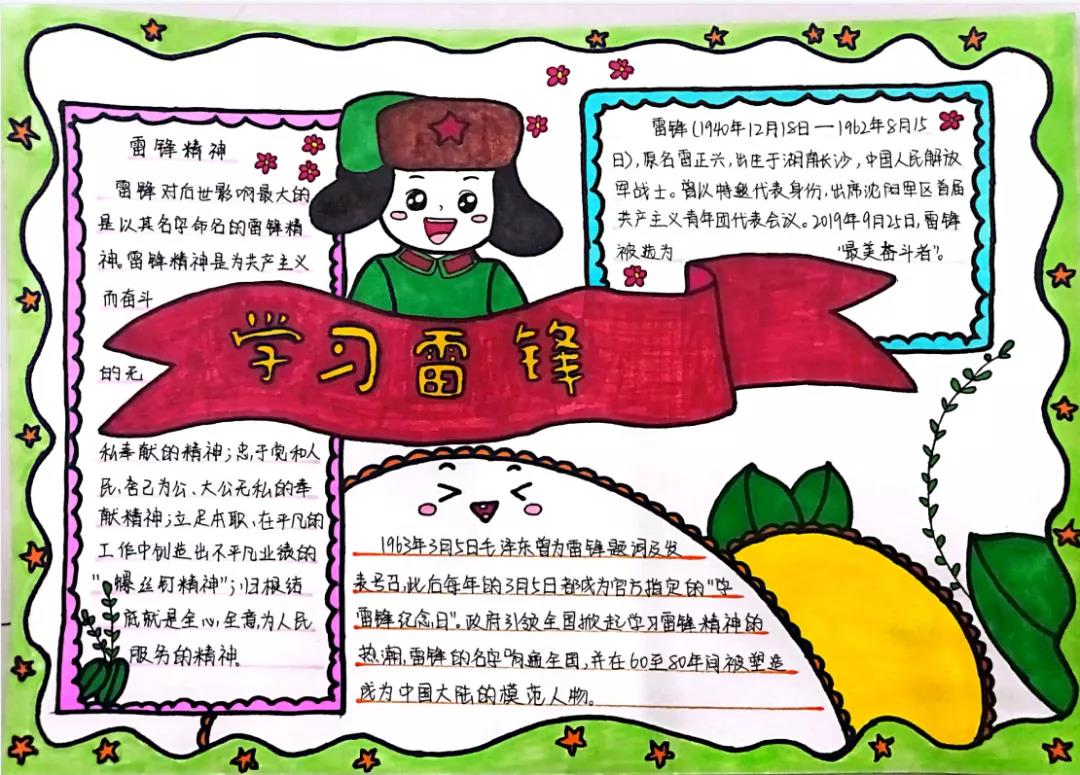 学习雷锋
雷锋精神
雷锋对后世影响最大的
是以其名字命名的雷锋精
神。雷锋精神是为共产主义
而奋斗
的无
私奉献的精神；忠于党和人
民、舍己为公、大公无私的奉
献精神；立足本职、在平凡的
工作中创造出不平凡业绩的
“螺丝钉精神”；归根结
底就是全心，全意，为人民
服务的精神。
雷锋（1940年12月18日—1962年8月15
日），原名雷正兴，出生于湖南长沙，中国人民解放
军战士。曾以特邀代表身份，出席沈阳军区首届
共产主义青年团代表会议。2019年9月25日，雷锋
被选为 “最美奋斗者”。
1963年3月5日毛泽东曾为雷锋题词及发
表号召，此后每年的3月5日都成为官方指定的“学
雷锋纪念日”。政府引领全国掀起学习雷锋精神的
热潮，雷锋的名字响遍全国，并在60至80年间被塑造
成为中国大陆的模范人物。